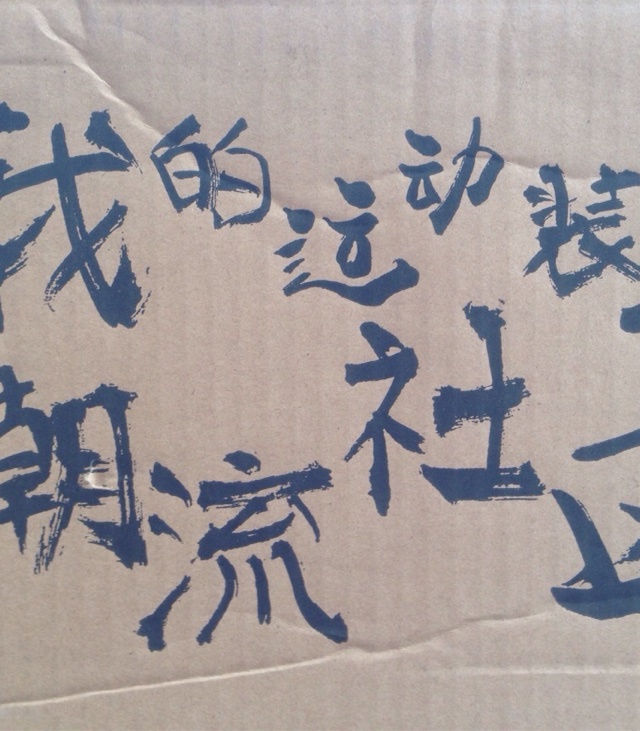 我的运动装
潮流社